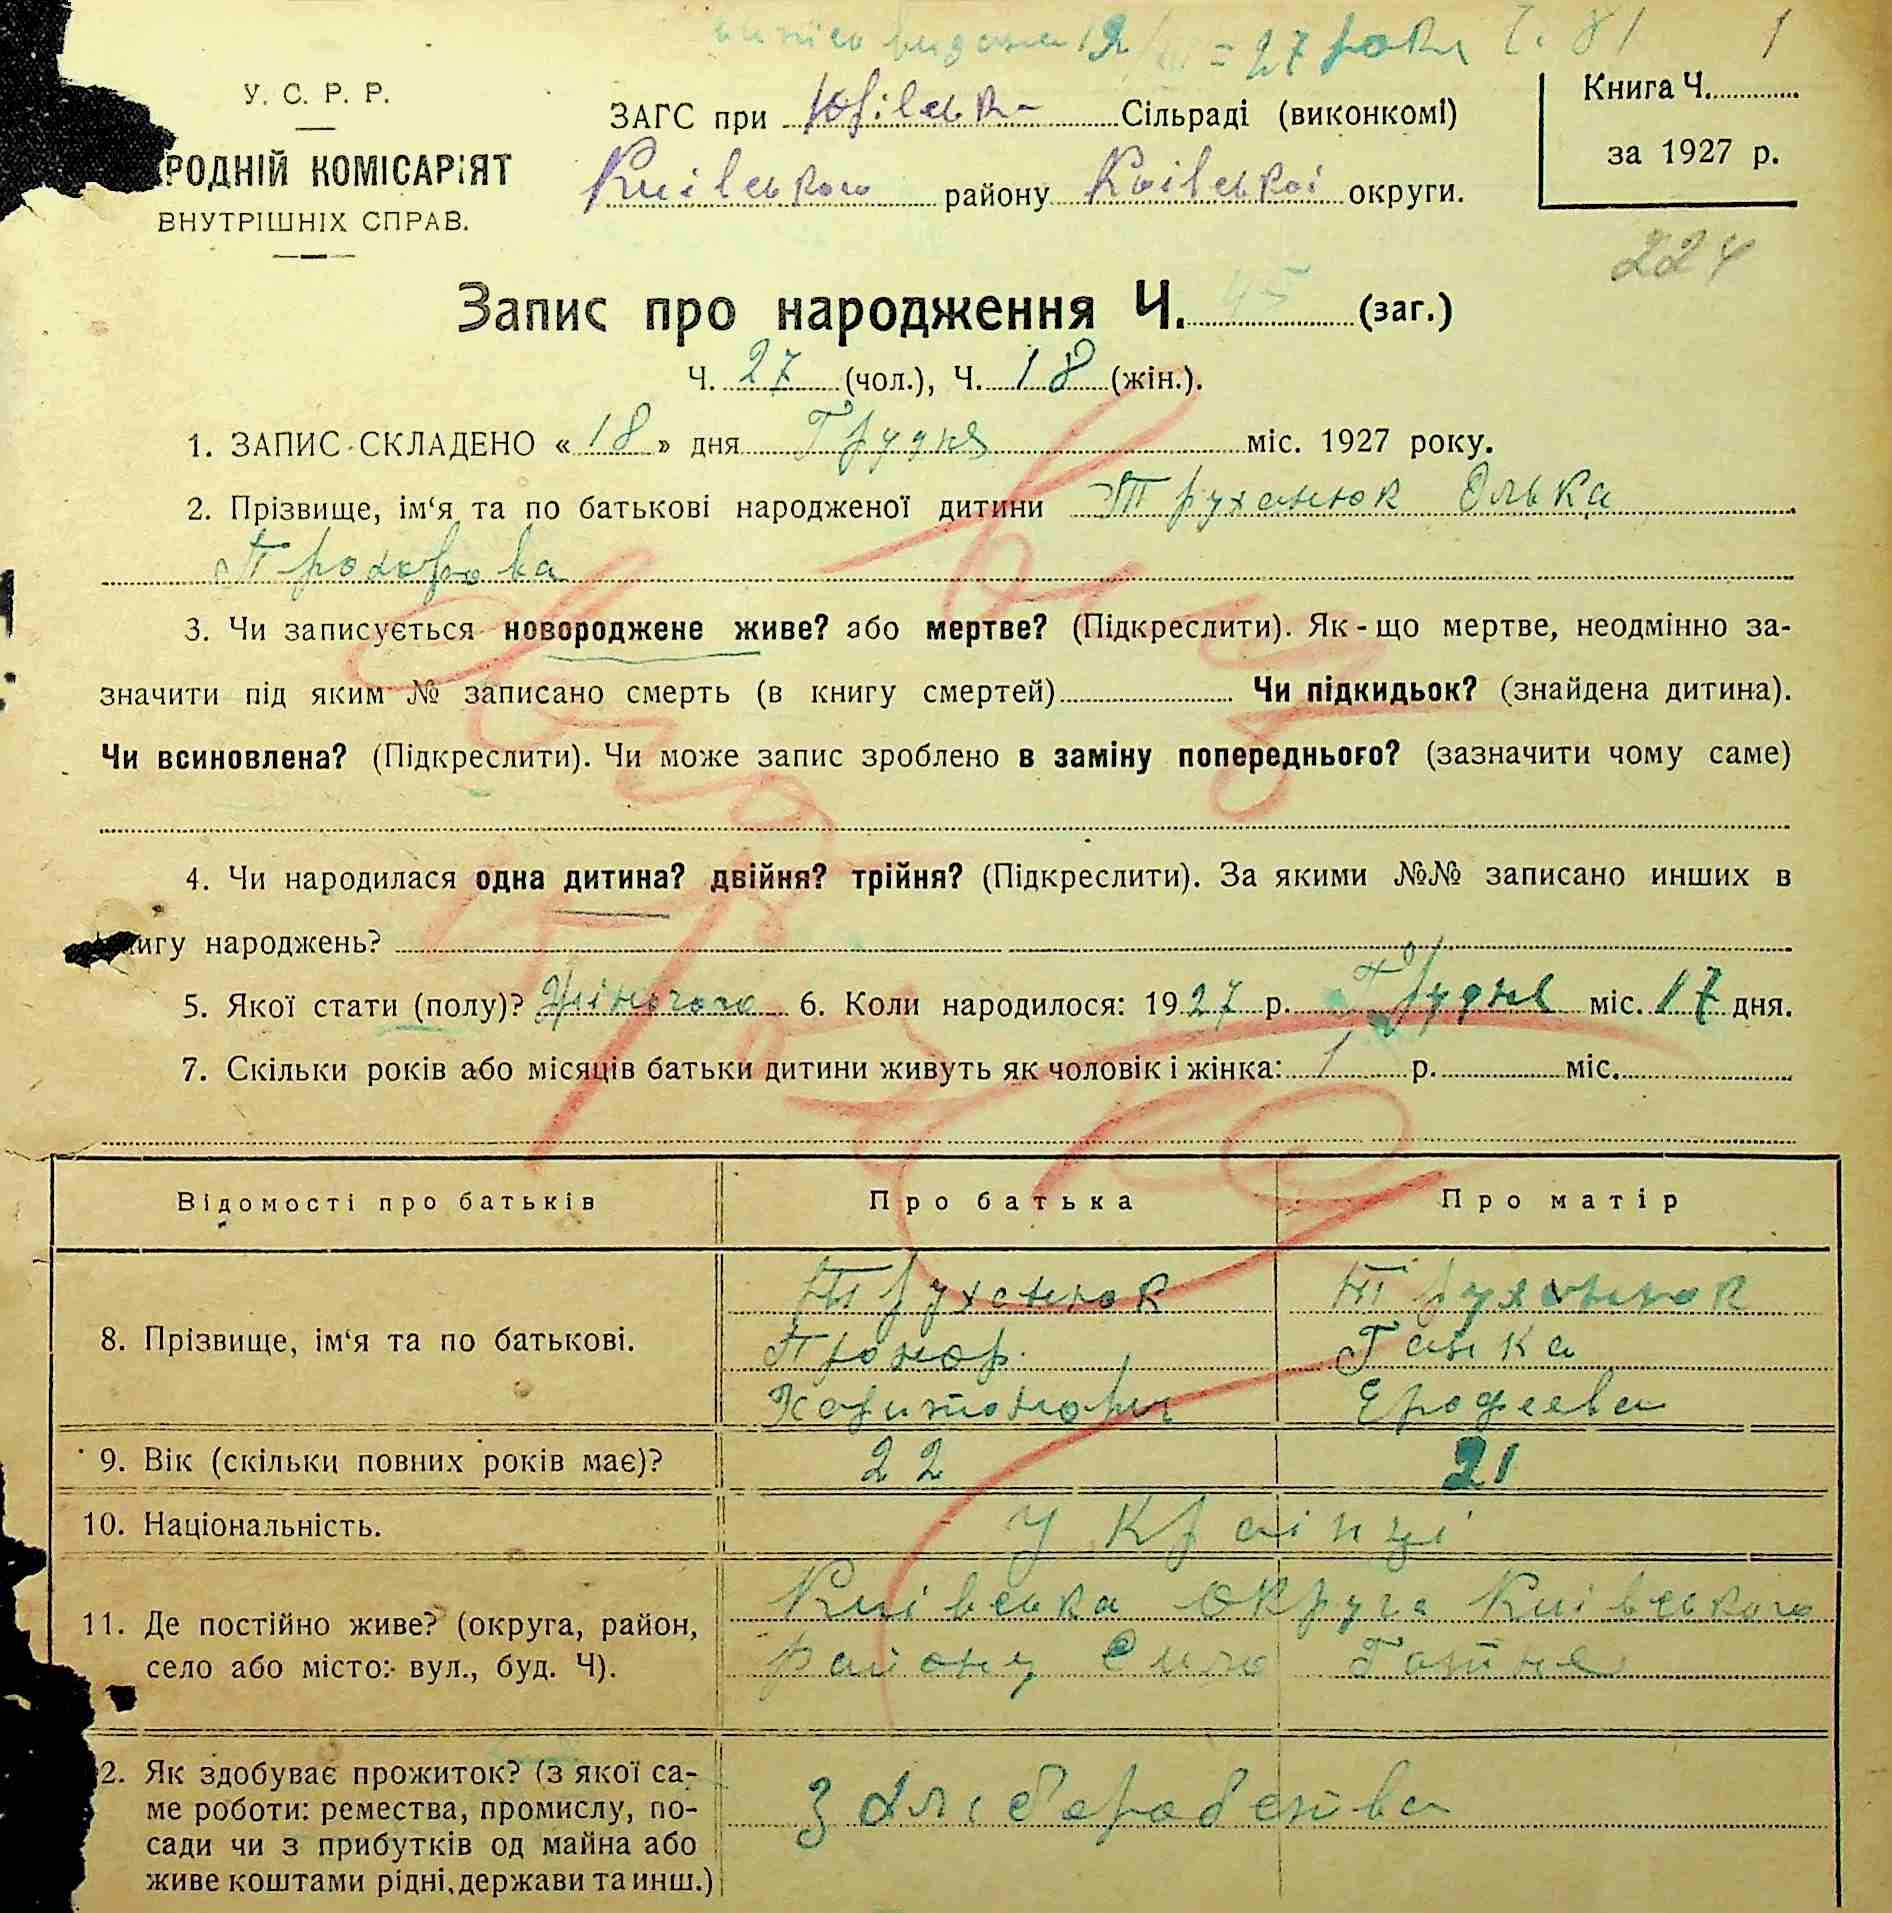 27 року Ч. 81 1
У. С. Р. Р.
РОДНІЙ КОМІСАРІЯТ
ВНУТРІШНІХ СПРАВ.
ЗАГС при Сільраді (виконкомі)
Київського району Київської округи.
Книга Ч.
за 1927 р.
224
Запис про народження Ч. 45 (заг.)
Ч. 27 (чол.), Ч. 18 (жін.).
1. ЗАПИС СКЛАДЕНО « 18 » дня Грудня міс. 1927 року.
2. Прізвище, ім‘я та по батькові народженої дитини Труханюк Олька
Прохорова
3. Чи записується новороджене живе? або мертве? (Підкреслити). Як-що мертве, неодмінно за-
значити під яким № записано смерть (в книгу смертей) Чи підкидьок? (знайдена дитина).
Чи всиновлена? (Підкреслити). Чи може запис зроблено в заміну попереднього? (зазначити чому саме)
4. Чи народилася одна дитина? двійня? трійня? (Підкреслити). За якими №№ записано инших в
нигу народжень?
5. Якої стати (полу)? Жіночого 6. Коли народилося: 1927 р. Грудня міс. 17 дня.
7. Скільки років або місяців батьки дитини живуть як чоловік і жінка: 1 р. міс.
Відомості про батьків Про батька Про матір
8. Прізвище, ім‘я та по батькові.
Труханюк Труханюк
Прохор Ганка
Харитонович Ерофеева
9. Вік (скільки повних років має)? 22 21
10. Національність. Українці
11. Де постійно живе? (округа, район,
село або місто: вул., буд. Ч).
Київська округа Київського
району Село Гатне
2. Як здобуває прожиток? (з якої са-
ме роботи: ремества, промислу, по-
сади чи з прибутків од майна або
живе коштами рідні, держави та инш.)
З хліборобства